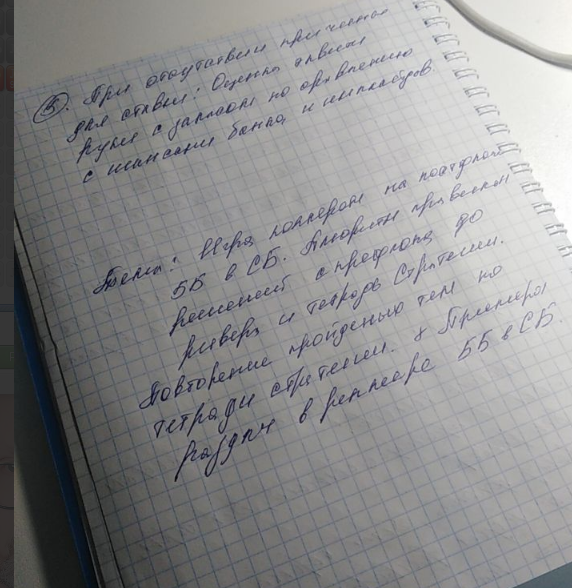 5. При отсутствии причины
для ставки: Оценка эквити
руки с запасом по сравнению
с шансами банка и имплайдов.
Тема: Игра коллером на постфлопе
ББ в СБ. Алгоритм принятия
решений с префлопа до
ривера и тетрадь Стратегии.
Повторение пройденных тем по
тетради стратегии. + Примеры
раздач в реплеере ББ в СБ.